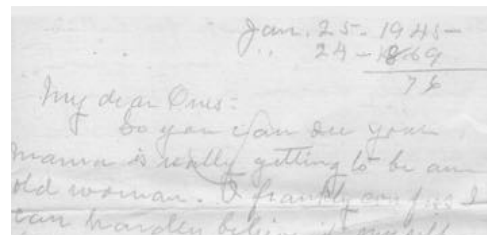 Jan. 25. 1945-
" 24-1869
76
My dear Ones:
So you can see your
mama is really getting to be an
old woman. I frankly confess I
can harden believe it myself